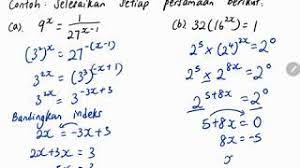 Contoh: Selesaikan Setiap persamaan berikut.
(a) 9^x = 1/27^(x-1)
(3^2)^x = 27^-(x-1)
3^2x = (3^3)^(-x+1)
3^2x = 3^(-3x+3)
Bandingkan indeks
2x = -3x+3
2x+3x = 3
(b) 32(16^2x) = 1
2^5 × (2^4)^2x = 2^0
2^5 × 2^8x = 2^0
2^(5+8x) = 2^0
5+8x = 0
8x = -5